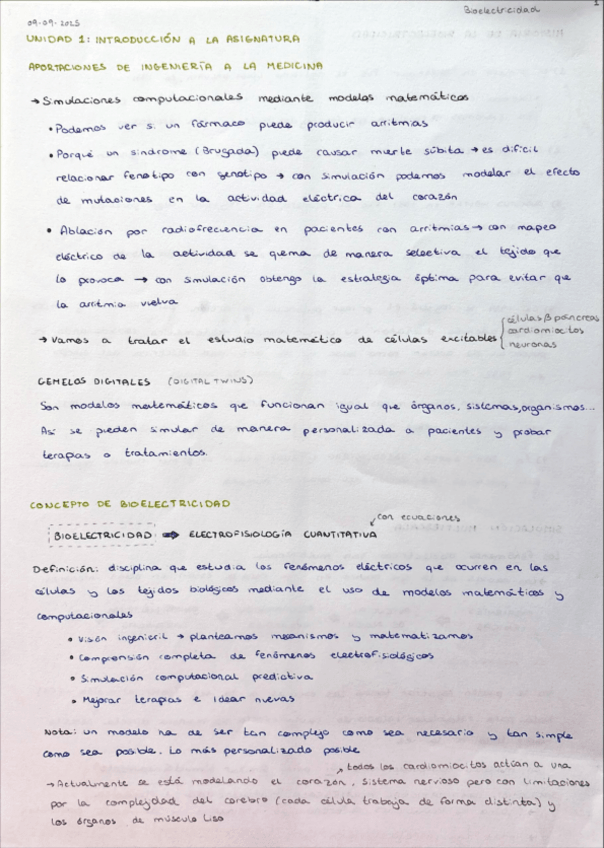 Bioelectricidad
1
09-09-2025
UNIDAD 1: INTRODUCCIÓN A LA ASIGNATURA
APORTACIONES DE INGENIERÍA A LA MEDICINA
→ Simulaciones computacionales mediante modelos matemáticos
• Podemos ver si un fármaco puede producir arritmias
• Porqué un síndrome (Brugada) puede causar muerte súbita → es difícil
relacionar fenotipo con genotipo → con simulación podemos modelar el efecto
de mutaciones en la actividad eléctrica del corazón
• Ablación por radiofrecuencia en pacientes con arritmias → con mapeo
eléctrico de la actividad se quema de manera selectiva el tejido que
lo provoca → con simulación obtengo la estrategia óptima para evitar que
la arritmia vuelva
→ Vamos a tratar el estudio matemático de células excitables { células β páncreas
cardiomiocitos
neuronas
GEMELOS DIGITALES (DIGITAL TWINS)
Son modelos matemáticos que funcionan igual que órganos, sistemas, organismos...
Así se pueden simular de manera personalizada a pacientes y probar
terapias o tratamientos.
CONCEPTO DE BIOELECTRICIDAD
con ecuaciones
BIOELECTRICIDAD ⇒ ELECTROFISIOLOGÍA CUANTITATIVA
Definición: disciplina que estudia los fenómenos eléctricos que ocurren en las
células y los tejidos biológicos mediante el uso de modelos matemáticos y
computacionales
• Visión ingenieril → planteamos mecanismos y matematizamos
• Comprensión completa de fenómenos electrofisiológicos
• Simulación computacional predictiva
• Mejorar terapias e idear nuevas
Nota: un modelo ha de ser tan complejo como sea necesario y tan simple
como sea posible. Lo más personalizado posible
todos los cardiomiocitos actúan a una
→ Actualmente se está modelando el corazón, sistema nervioso pero con limitaciones
por la complejidad del cerebro (cada célula trabaja de forma distinta) y
los órganos de músculo liso